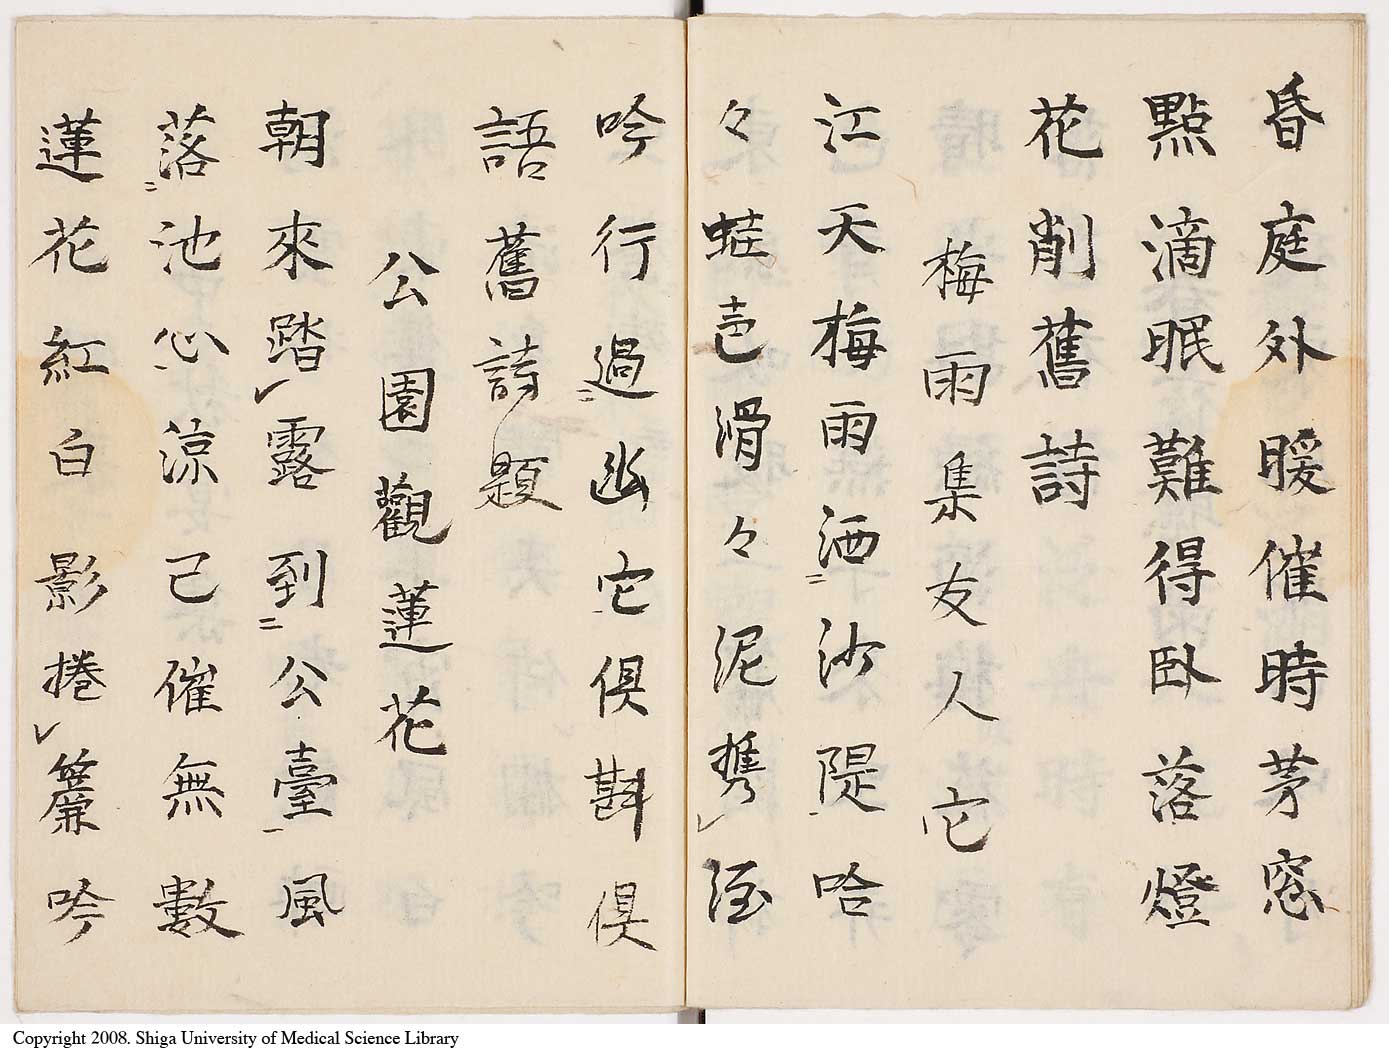 昏庭外暖催時茅窓
點滴眠難得臥落燈
花削舊詩
梅雨集友人宅
江天梅雨洒沙隄哈
々蛙邑滑々泥携酒
吟行過幽宅倶斟倶
語舊詩題
公園觀蓮花
朝來踏露到公臺風
落池心涼已催無數
蓮花紅白影捲簾吟
Copyright 2008. Shiga University of Medical Science Library